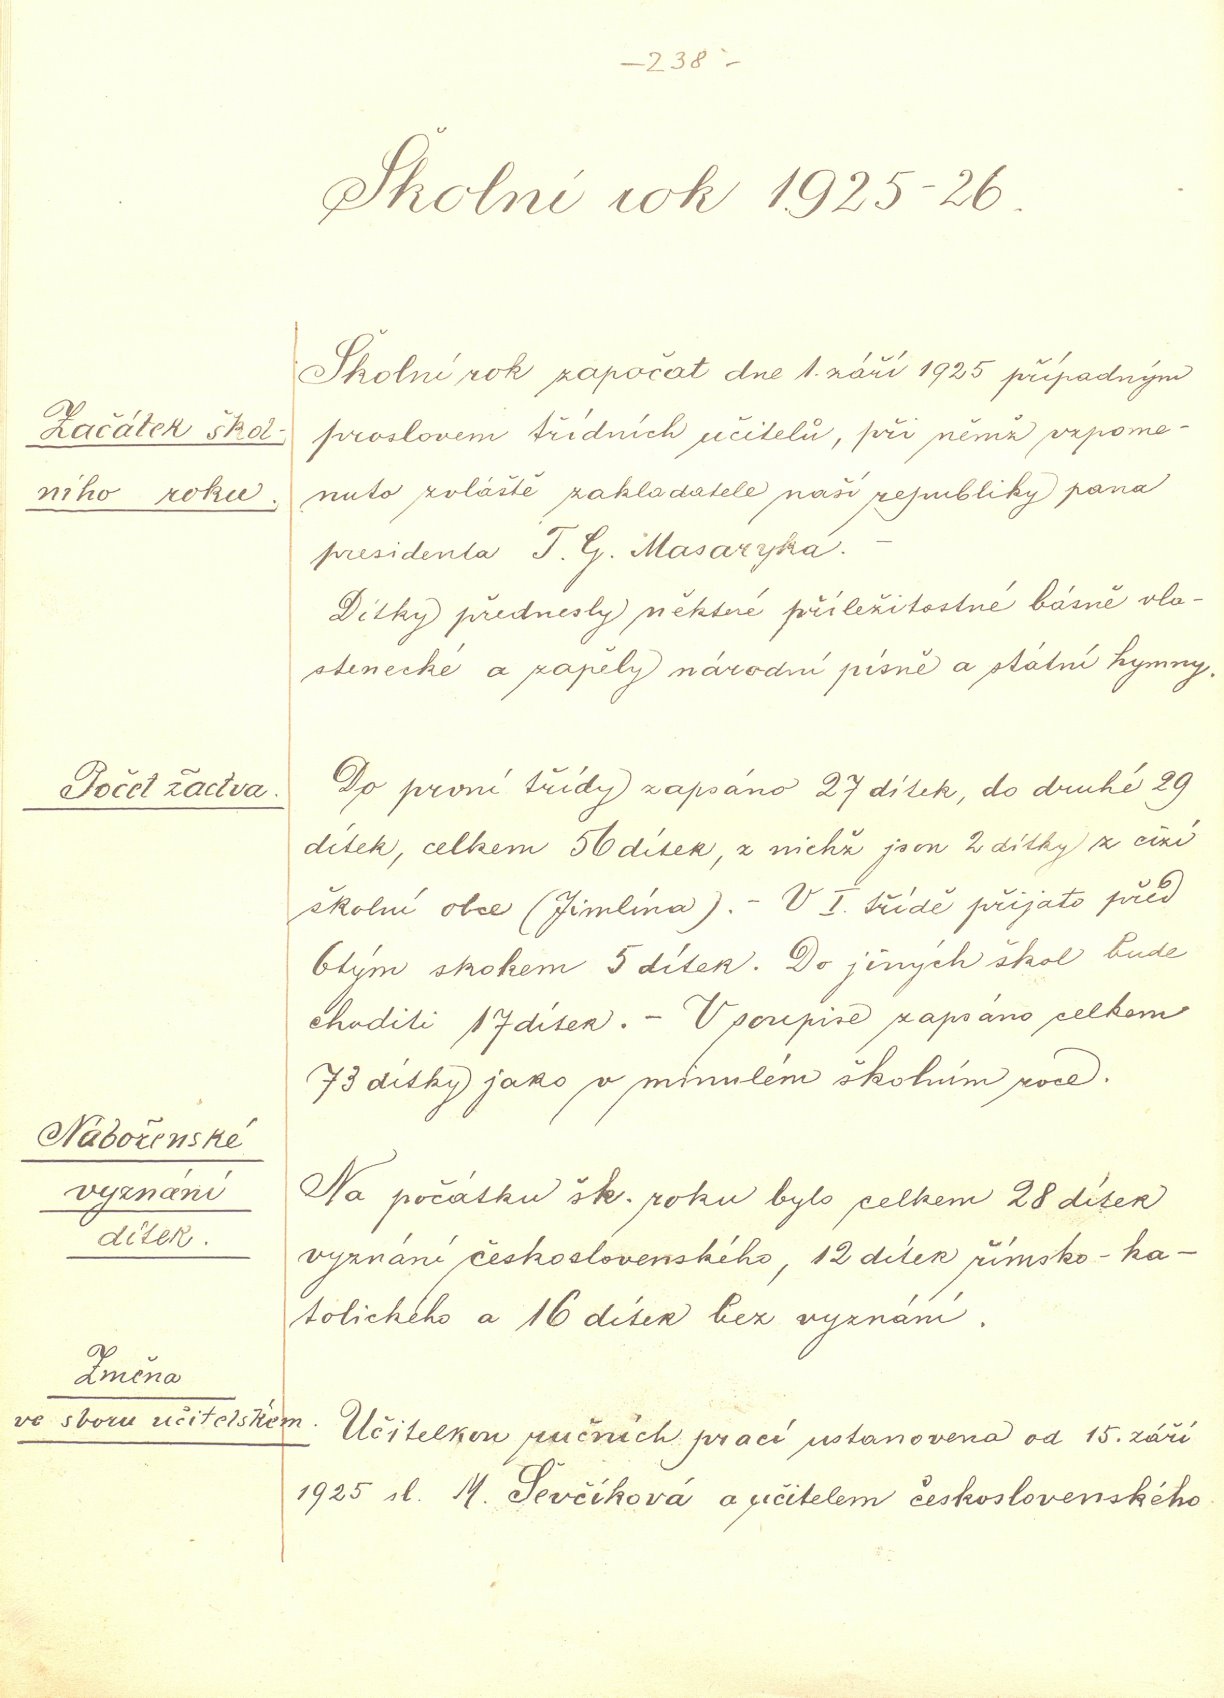 –238–
Školní rok 1925-26.
Začátek škol-
ního roku.
Školní rok započat dne 1. září 1925 případným
proslovem třídních učitelů, při němž vzpome-
nuto zvláště zakladatele naší republiky pana
presidenta T. G. Masaryka. –
Dítky přednesly některé příležitostné básně vla-
stenecké a zapěly národní písně a státní hymny.
Počet žactva.
Do první třídy zapsáno 27 dítek, do druhé 29
dítek, celkem 56 dítek, z nichž jsou 2 dítky z cizí
školní obce (Jimlína). – V I. třídě přijato před
6tým rokem 5 dítek. Do jiných škol bude
choditi 17 dítek. – V soupise zapsáno celkem
73 dítky jako v minulém školním roce.
Náboženské
vyznání
dítek.
Na počátku šk. roku bylo celkem 28 dítek
vyznání československého, 12 dítek římsko-ka-
tolického a 16 dítek bez vyznání.
Změna
ve sboru učitelském.
Učitelkou ručních prací ustanovena od 15. září
1925 sl. M. Ševčíková a učitelem československého